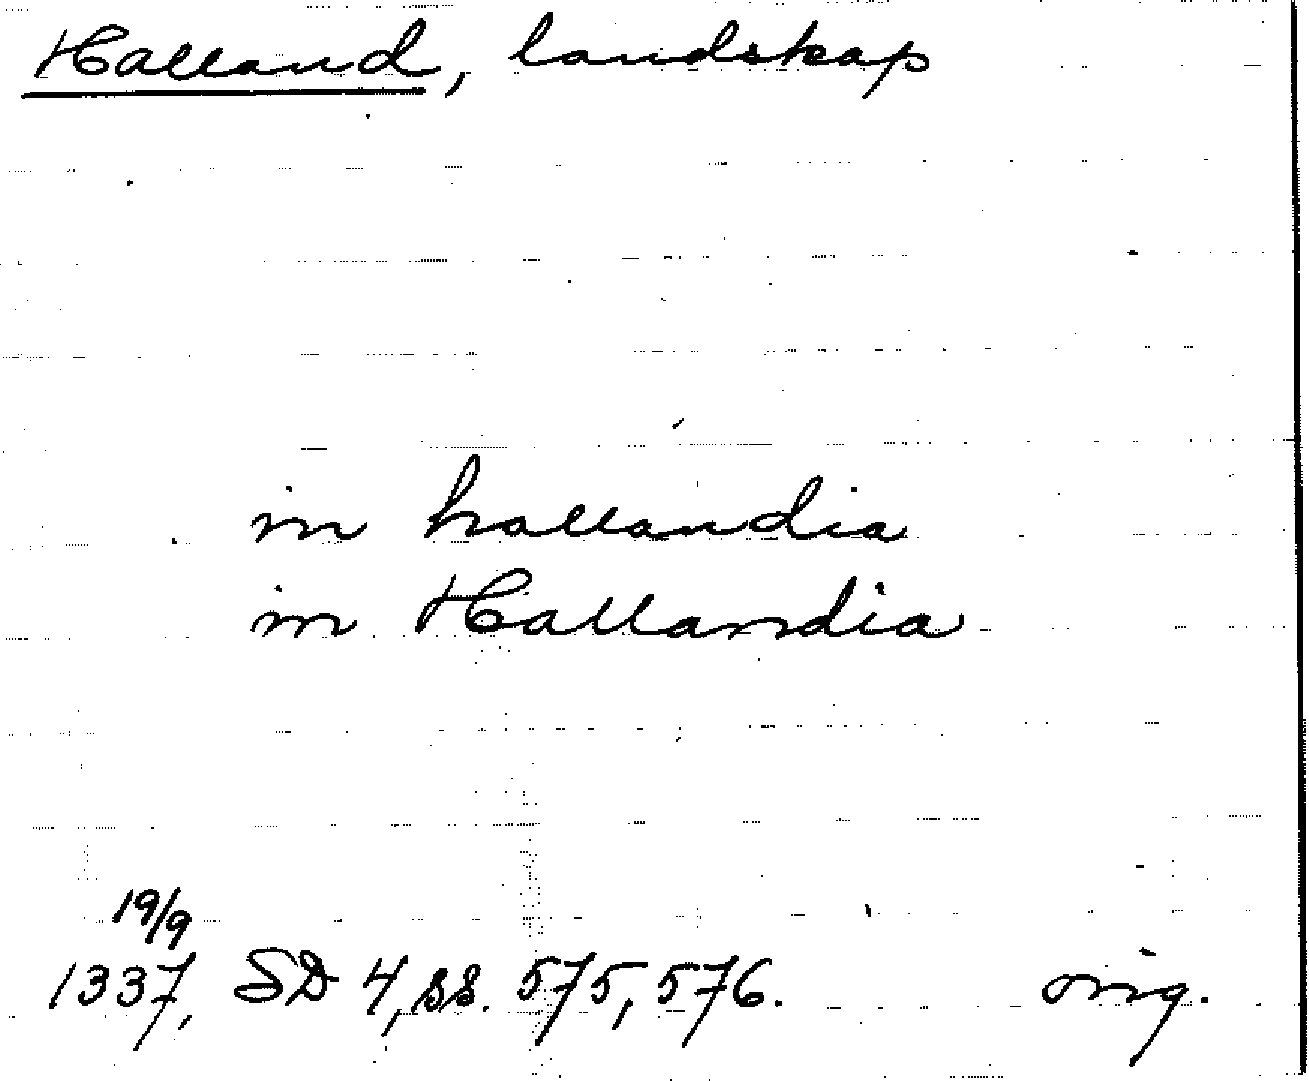 Halland, landskap
in hallandia
in Hallandia
19/9
1337, SD 4, ss. 575, 576. orig.